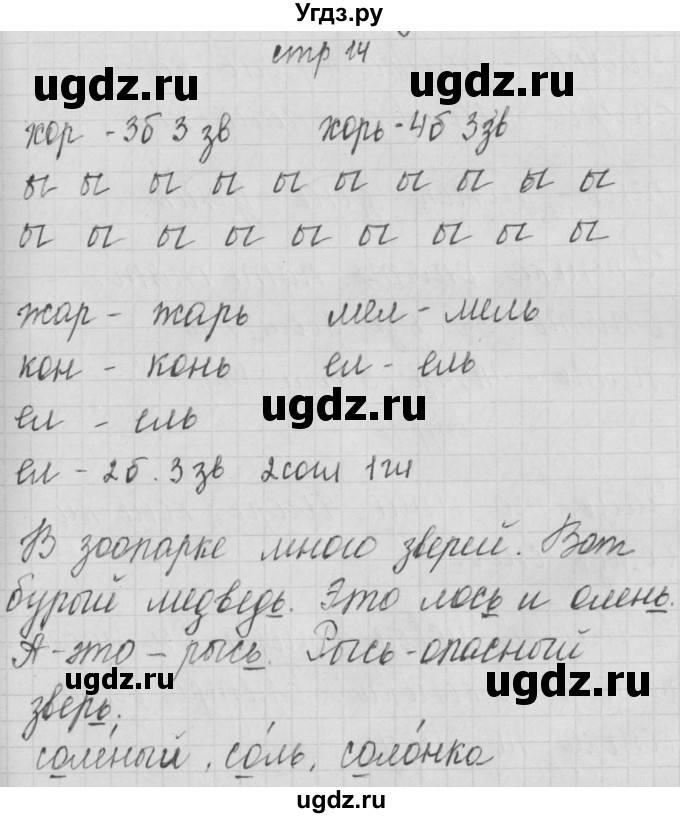 Угдз.ру
стр 14
ugdz.ru ugdz.ru
хор - 3б 3 зв хорь - 4б 3зв
ы ы ы ы ы ы ы ы ы ы
ы ы ы ы ы ы ы ы ы
жар - жарь мел - мель
кон - конь ел - ель
ugdz.ru
ел - ель
ел - 2б. 3 зв 2согл 1гл
В зоопарке много зверей. Вот
бурый медведь. Это лось и олень.
А - это - рысь. Рысь - опасный
ugdz.ru ugdz.ru
зверь.
солёный, со́ль, соло́нка
ugdz.ru